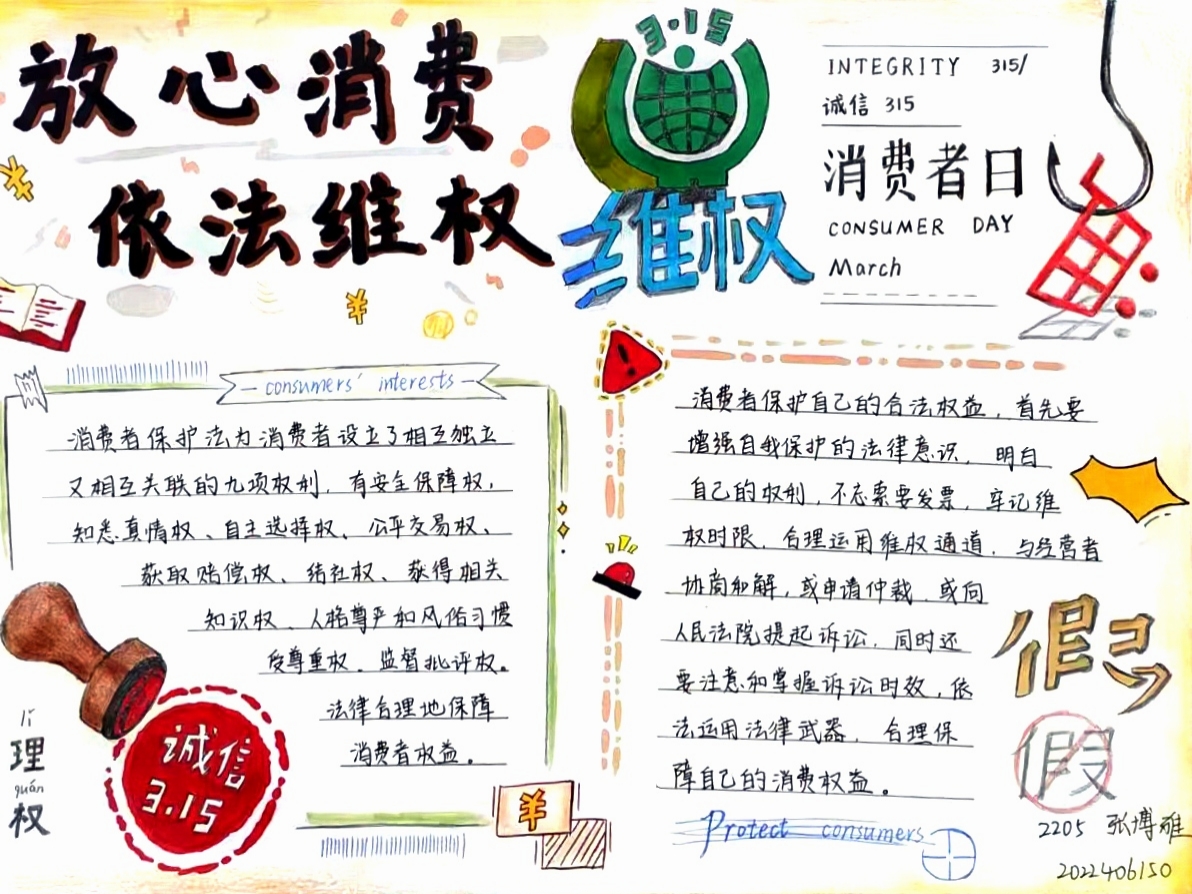 放心消费
依法维权
3·15
维权
INTEGRITY 315/
诚信 315
消费者日
CONSUMER DAY
March
consumers' interests
消费者保护法为消费者设立了相互独立
又相互关联的九项权利，有安全保障权，
知悉真情权、自主选择权、公平交易权、
获取赔偿权、结社权、获得相关
知识权、人格尊严和风俗习惯
受尊重权、监督批评权。
法律合理地保障
消费者权益。
lǐ
理
quán
权
诚信
3.15
¥
消费者保护自己的合法权益，首先要
增强自我保护的法律意识，明白
自己的权利，不忘索要发票，牢记维
权时限，合理运用维权通道，与经营者
协商和解，或申请仲裁，或向
人民法院提起诉讼，同时还
要注意和掌握诉讼时效，依
法运用法律武器，合理保
障自己的消费权益。
Protect consumers
假
假
2205 张博雅
2022406150